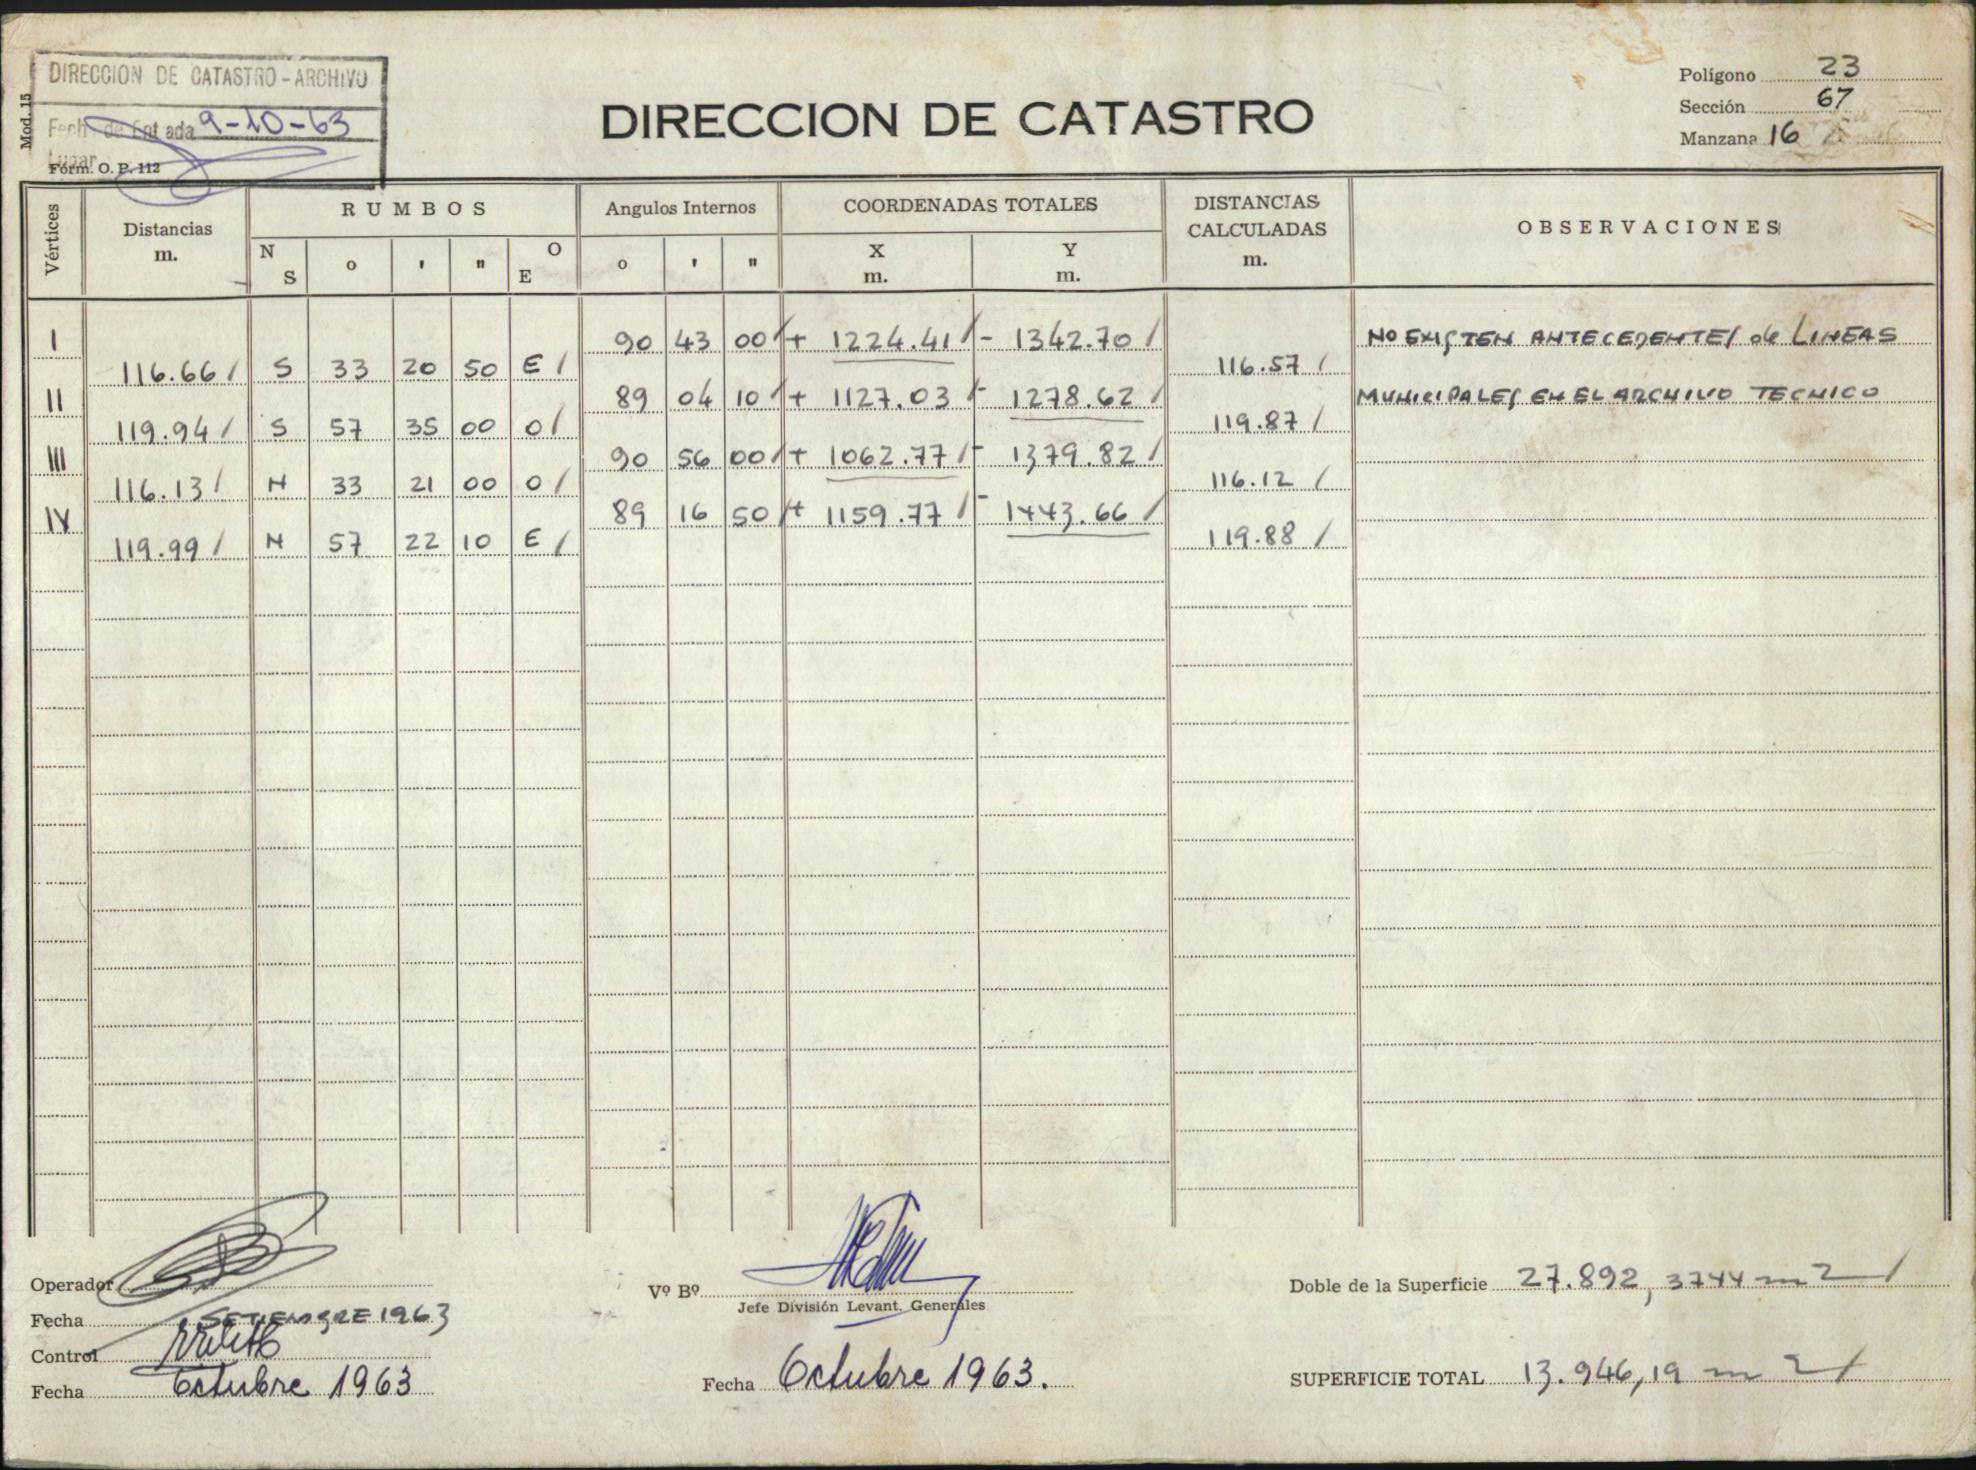 DIRECCION DE CATASTRO - ARCHIVO
Fecha de Entrada 9-10-63
Lugar
Mod. 15
Fórm. O. P. 112
DIRECCION DE CATASTRO
Polígono 23
Sección 67
Manzana 16
Vértices Distancias m. RUMBOS Angulos Internos COORDENADAS TOTALES DISTANCIAS CALCULADAS m. OBSERVACIONES
N S o ' " O E o ' " X m. Y m.
I 90 43 00 / + 1224.41 / - 1342.70 / NO EXISTEN ANTECEDENTES de LINEAS
116.66 / S 33 20 50 E / 116.57 /
II 89 04 10 / + 1127.03 / - 1278.62 / MUNICIPALES EN EL ARCHIVO TECNICO
119.94 / S 57 35 00 O / 119.87 /
III 90 56 00 / + 1062.77 / - 1379.82 /
116.13 / N 33 21 00 O / 116.12 /
IV 89 16 50 / + 1159.77 / - 1443.66 /
119.99 / N 57 22 10 E / 119.88 /
Operador
Fecha SETIEMBRE 1963
Control
Fecha Octubre 1963
Vº Bº
Jefe División Levant. Generales
Fecha Octubre 1963.
Doble de la Superficie 27.892,3744 m2 /
SUPERFICIE TOTAL 13.946,19 m2 /